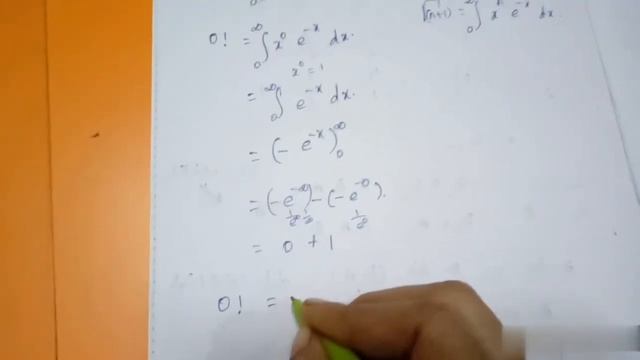 √(n+1) = ∫₀^∞ xⁿ e^-x dx.
0! = ∫₀^∞ x⁰ e^-x dx.
x⁰ = 1
= ∫₀^∞ e^-x dx.
= (- e^-x)₀^∞
= (-e^-∞) - (-e^-0).
= 0 + 1
0! =